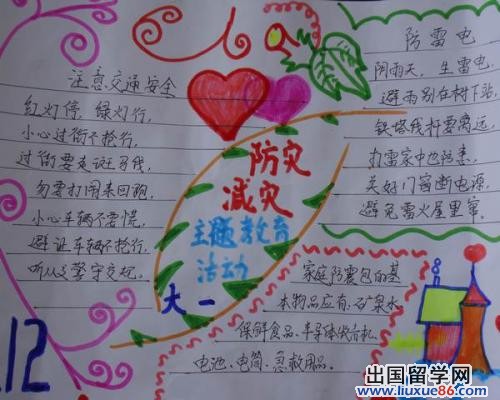 注意交通安全
红灯停，绿灯行，
小心过街不抢行，
过街要走斑马线，
勿要打闹来回跑，
小心车辆不要慌，
避让车辆不抢行，
听从交警守交规。
防灾
减灾
主题教育
活动
大一
防雷电
阴雨天，生雷电，
避雨别在树下站，
铁塔线杆要离远，
打雷家中也
关好门窗断电源，
避免雷火屋里窜。
家庭防震包的基
本物品应有：矿泉水、
保鲜食品、半导体收音机、
电池、电筒、急救用品。
12
出国留学网
www.liuxue86.com